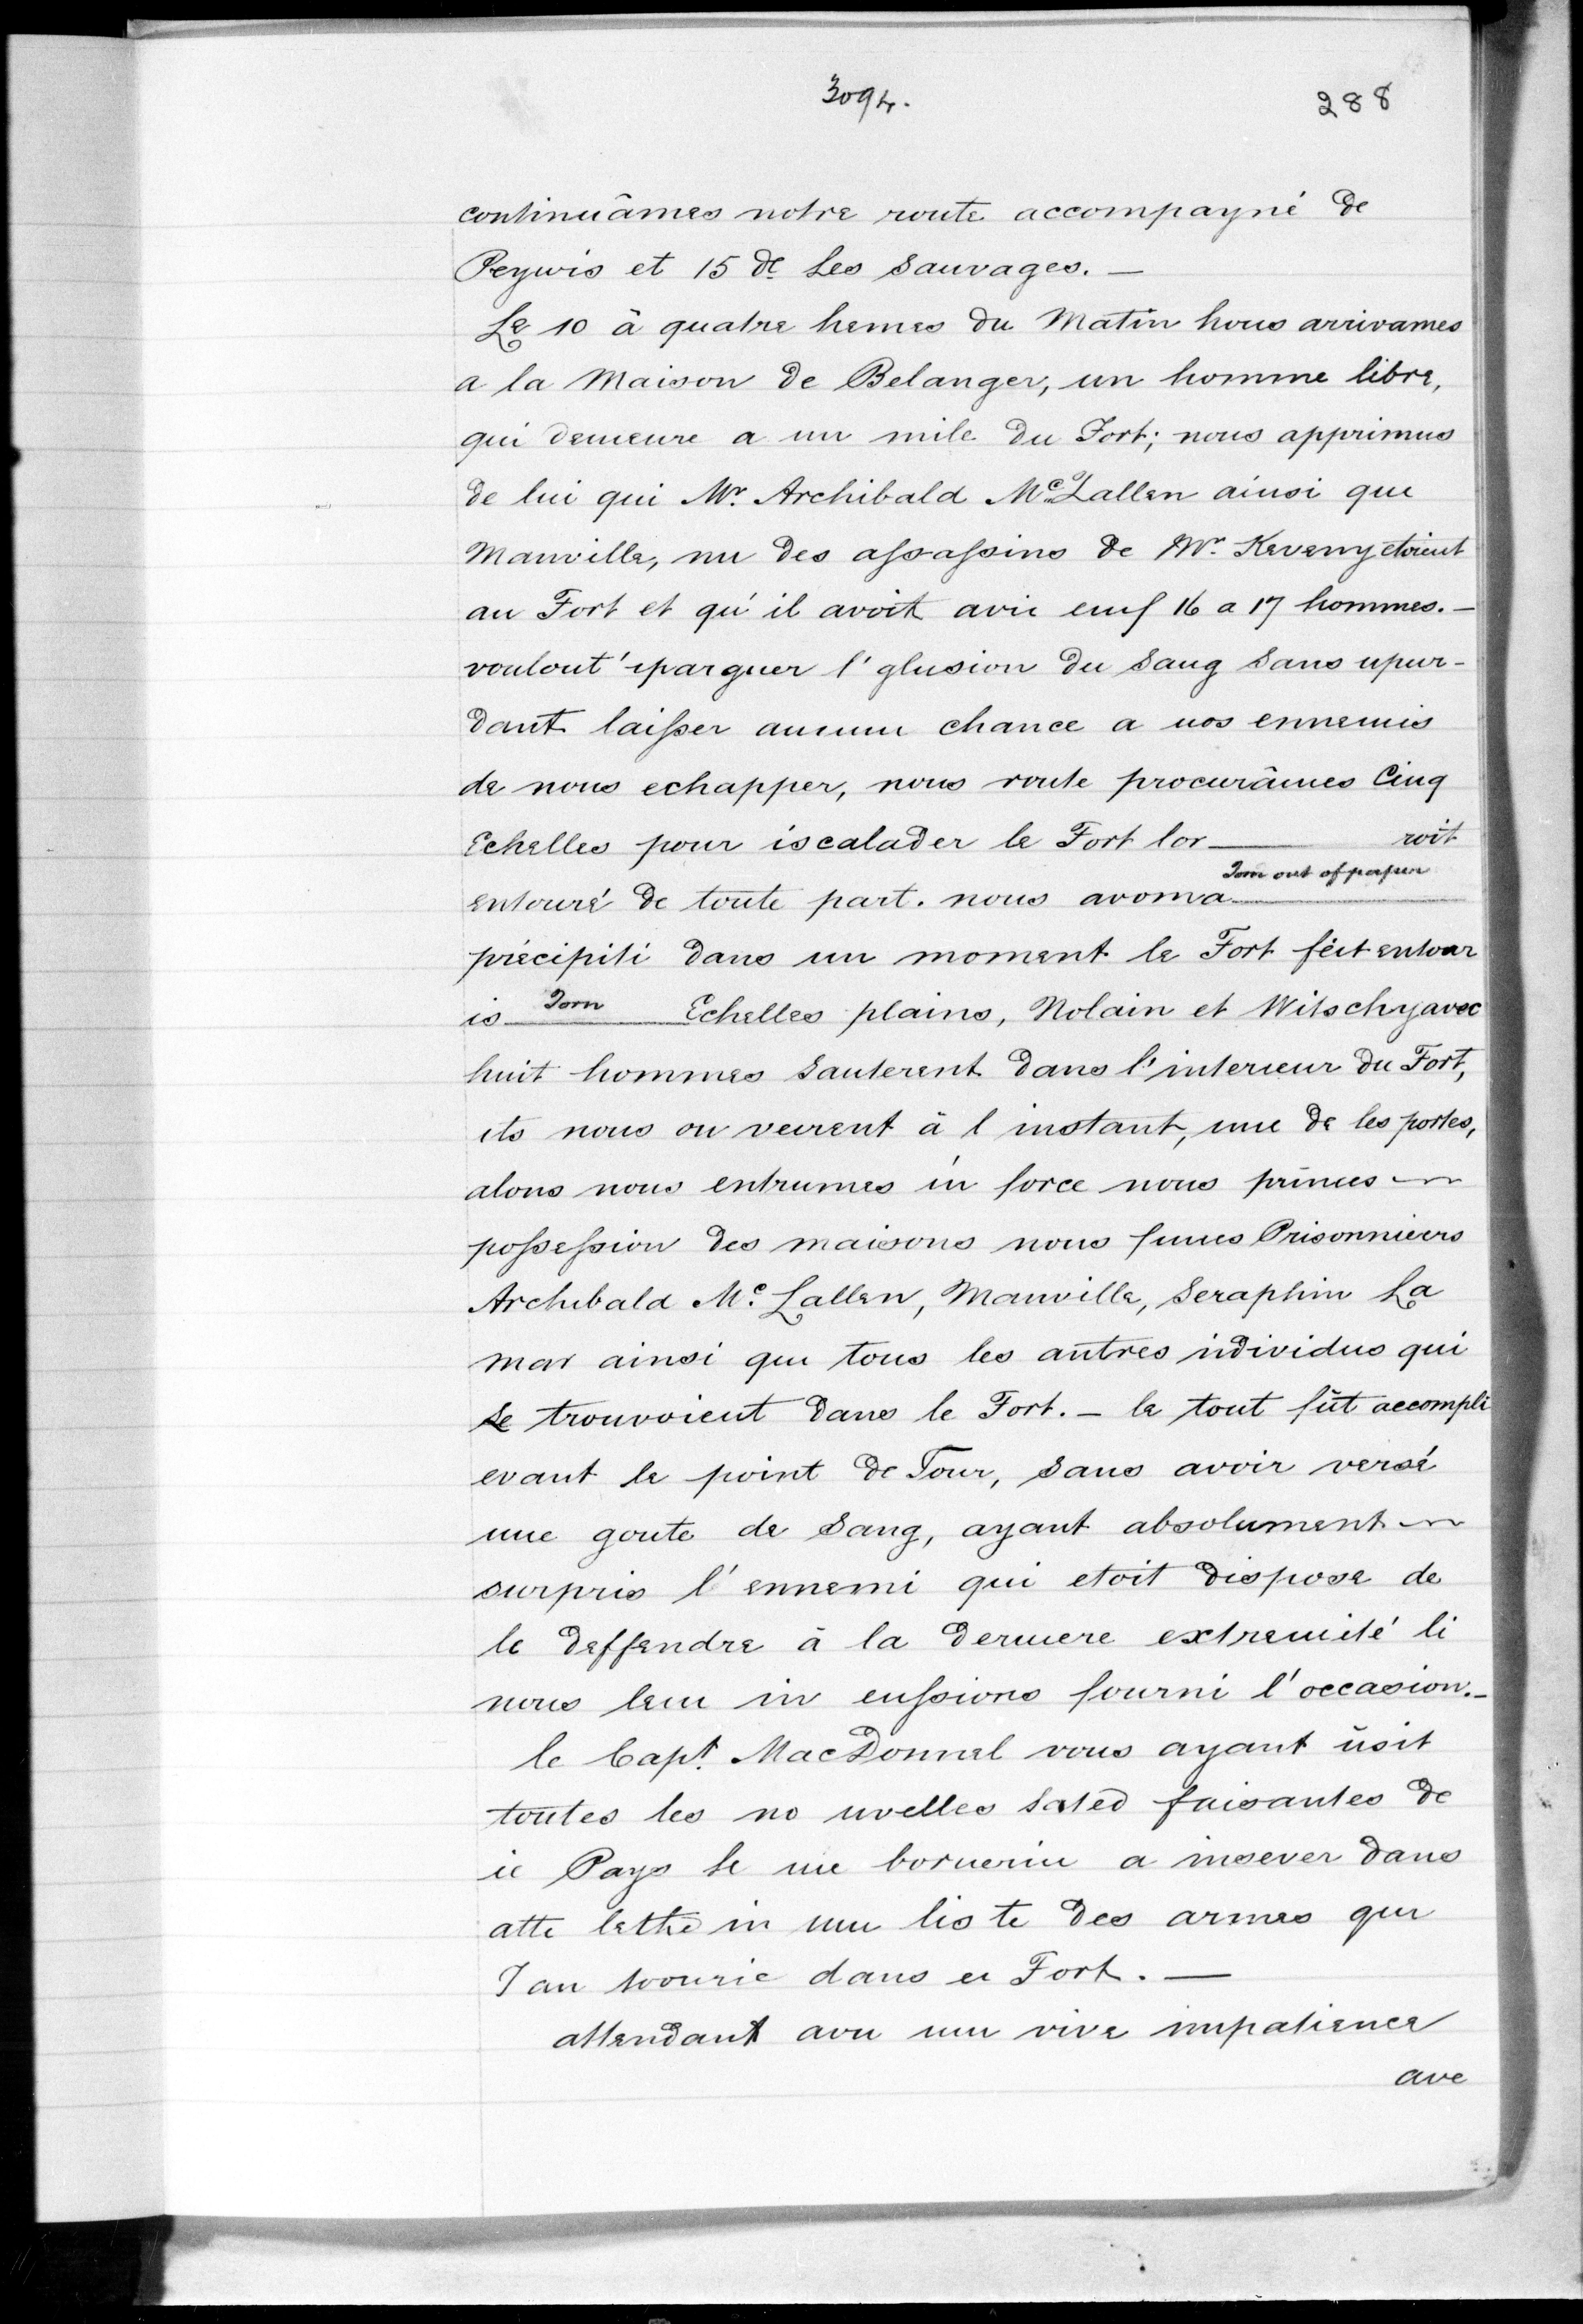 3094.
288
continuâmes notre route accompayné de
Peywis et 15 de Les Sauvages. —
Le 10 à quatre hemes du Matin hous arrivames
a la Maison de Belanger, un homme libre,
qui demeure a un mile du Fort; nous apprimus
de lui qui Mr. Archibald McLallen ainsi que
Manville, nu des assassins de Mr. Keveny etoient
au Fort et qu'il avoit avie eux 16 a 17 hommes. —
voulout 'iparguer l'glusion du Saug Sans upur-
dant laisser aucuu chance a nos ennemis
de nous echapper, nous route procurâmes Cinq
Echelles pour iscalader le Fort lor — roit
Torn out of paper
entouré de toute part. nous avoma —
précipiti dans un moment le Fort fêit entour
is Torn Echelles plains, Nolain et Witschy avec
huit hommes Sauterent dans l'interieur du Fort,
its nous ou veurent à l instant, une de les portes,
alons nous entrumes ín force nous primes
possession des maisons nous fumes Prisonniers
Archibald Mc. Lallen, Manville, Seraphin La
mar ainsi que tous les autres individus qui
Se trouvoient dans le Fort. — le tout fût accompli
evant le point de Tour, Sans avoir versé
une goute de Sang, ayant absolument
surpris l'ennemi qui etoit dispose de
le deffendre à la dermere extremité li
nous leuu in eussions fourni l'occasion. —
le Capt. MacDonnel vous ayant üsit
toutes les no uvelles Sated faisantes de
ie Pays le me borueriu a insever dans
atte lethe in uuu lis te des armes qui
J au toourie dans ei Fort. —
attendant avu uuu vive impatience
ave